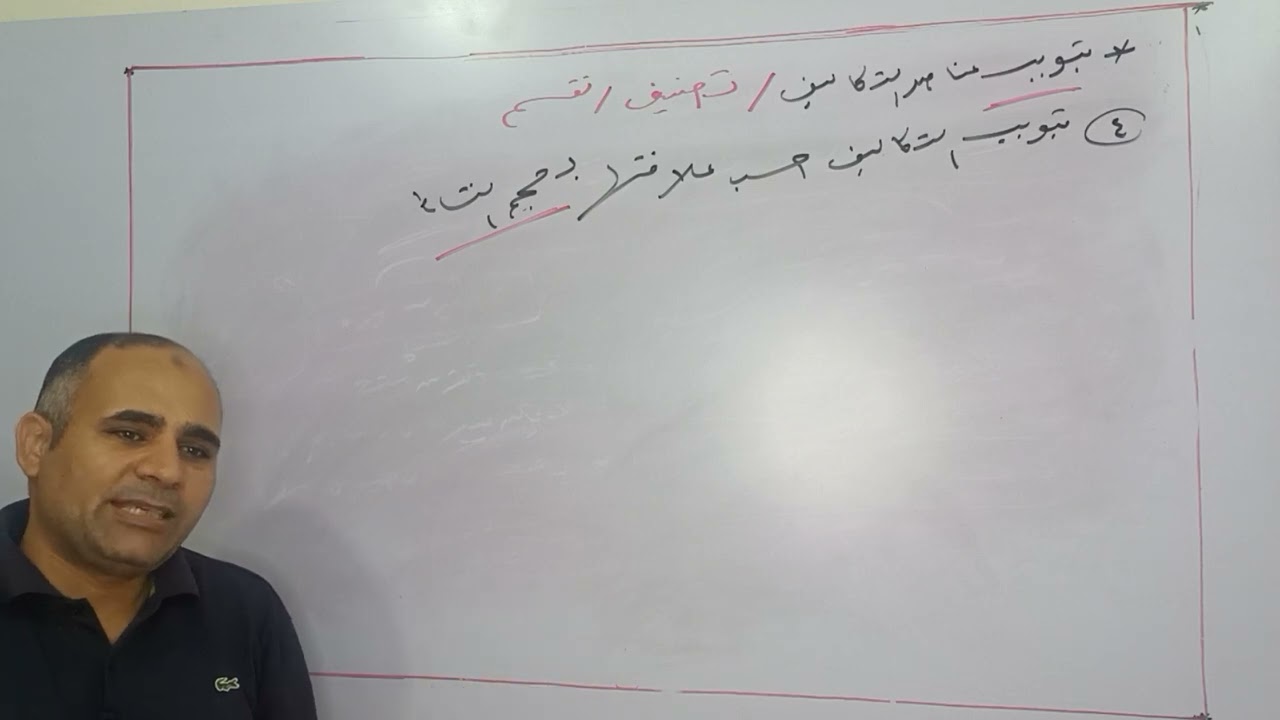 * تبويب عناصر التكاليف / تصنيف / تقسم
٤ تبويب التكاليف حسب علاقتها بحجم النشاط